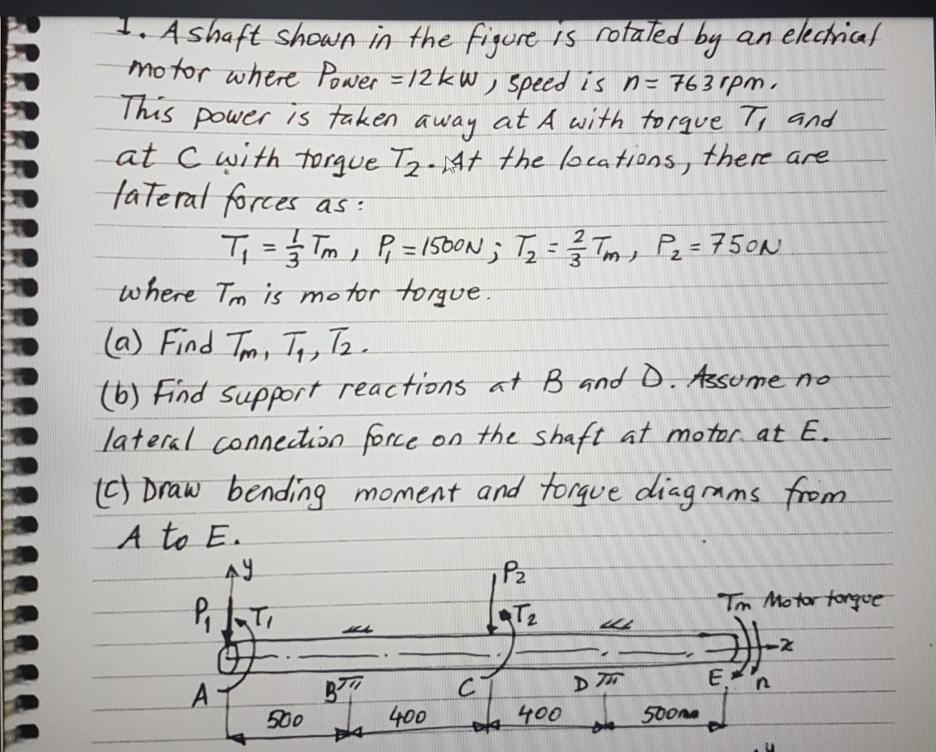 1. A shaft shown in the figure is rotated by an electrical
motor where Power = 12 kW, speed is n = 763 rpm.
This power is taken away at A with torque T₁ and
at C with torque T₂. At the locations, there are
lateral forces as:
T₁ = 1/3 Tm, P₁ = 1500N; T₂ = 2/3 Tm, P₂ = 750N
where Tm is motor torque.
(a) Find Tm, T₁, T₂.
(b) Find support reactions at B and D. Assume no
lateral connection force on the shaft at motor at E.
(c) Draw bending moment and torque diagrams from
A to E.
y P₂
P₁ T₁ T₂ Tm Motor torque
x
A B C D E n
500 400 400 500mm